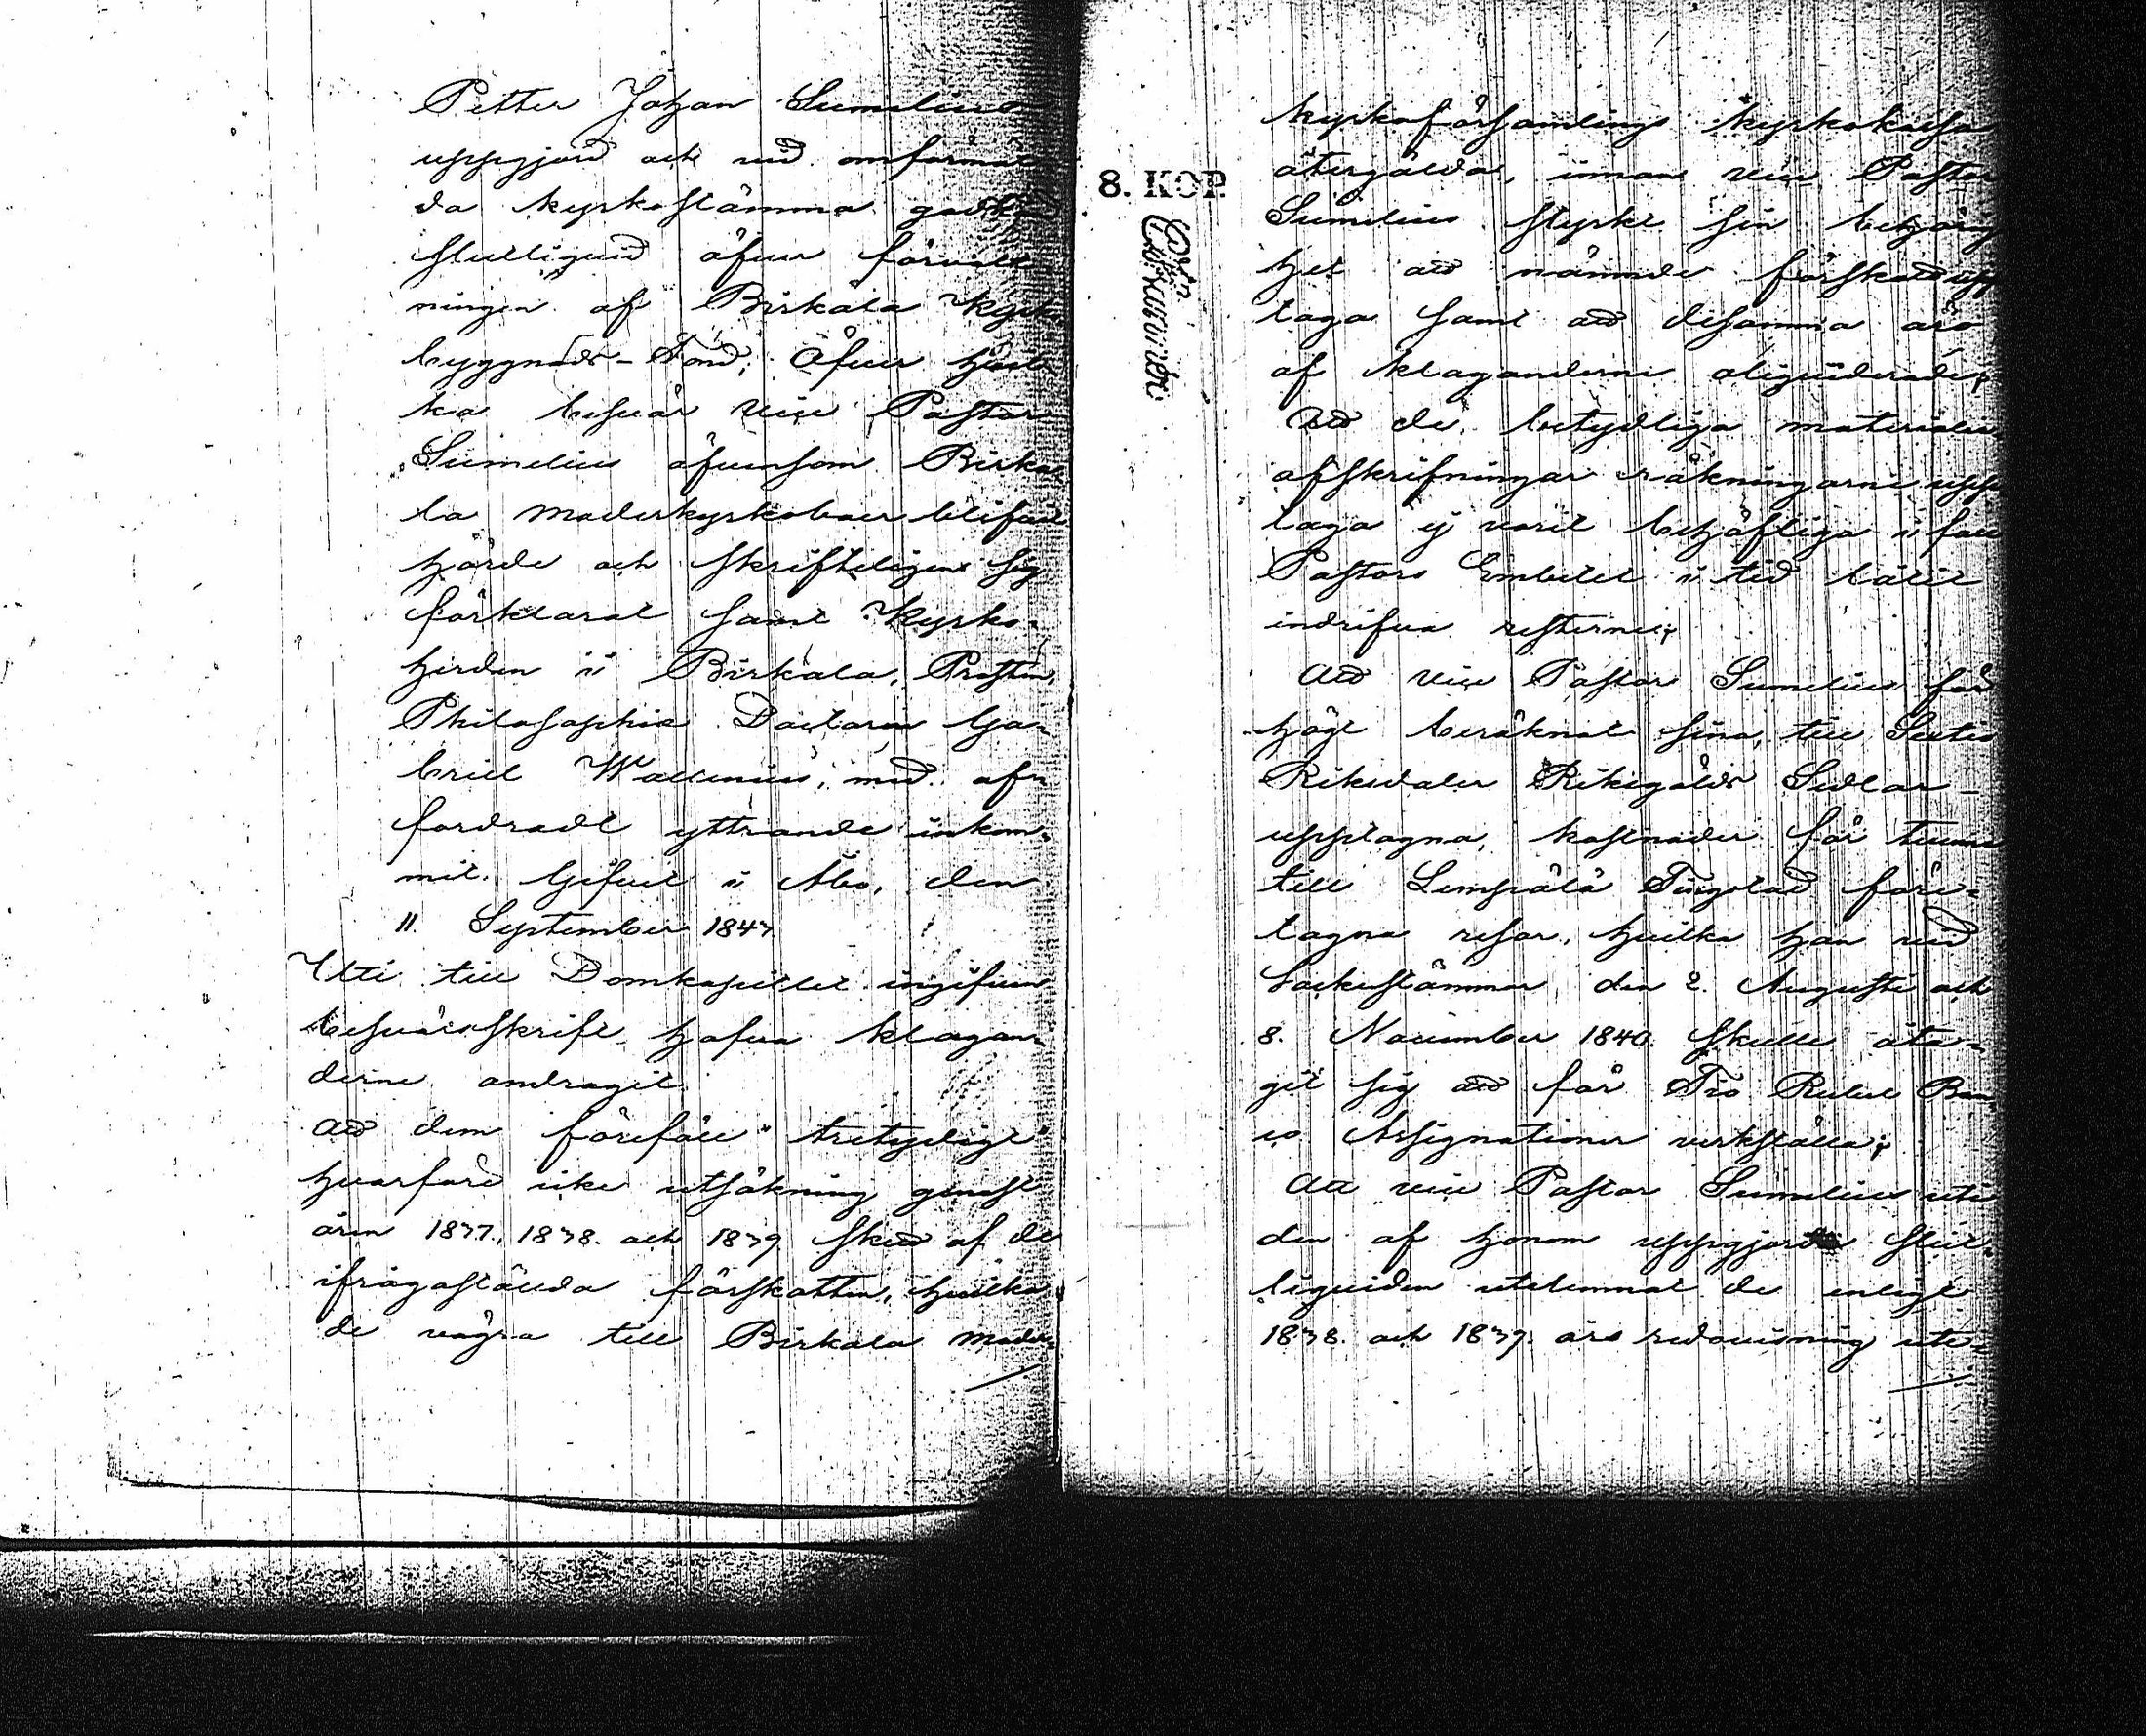 Petter Johan Sumelius
uppgjord och vid omförmäl
da kyrkostämma godkänd
slutliquid öfver förvalt
ningen af Birkala Kyrko
byggnads-Fond; Öfver hvil
ka besvär vice Pastor
Sumelius äfvensom Birka
la moderkyrkoboer blifvit
hörde och skrifteligen sig
förklarat samt Kyrko-
herden i Birkala, Prosten,
Philosophiæ Doctorn Ga-
briel Wallenius, med af-
fordradt yttrande inkom-
mit. Gifvet i Åbo, den
11. September 1847.
Uti till Domkapitlet ingifven
besvärsskrift hafva klagan-
derne andragit
att dem förefäll "tvetydligt"
hvarföre icke utsökning genast
åren 1837., 1838. och 1839 skedt af de
ifrågaställda förskotten, hvilka
de vägra till Birkala moder-
8. KOP.
kyrkoförsamlings kyrkokassa
återgälda, innan vice Pastor
Sumelius styrkt sin behörig
het att nämnde förskott upp
taga samt att desamma äro
af klaganderne oliquiderade;
Att de betydliga materialier
afskrifningar räkningarne upp
taga ej varit behöfliga i fall
Pastors Embetet i tid låtit
indrifva resterne;
Att vice Pastor Sumelius för
högt beräknat sina, till Sextio
Riksdaler Riksgälds Sedlar
upptagna, kostnader för tvenne
till Lempälä Tingstad före-
tagna resor, hvilka han vid
Sockenstämmor den 2. Augusti och
8. November 1840. skulle åta-
git sig att för Tio Rubel Ban
co Assignationer verkställa;
Att vice Pastor Sumelius uti
den af honom uppgjorda slut-
liquiden utelemnat de enligt
1838. och 1839. års redovisning ute-